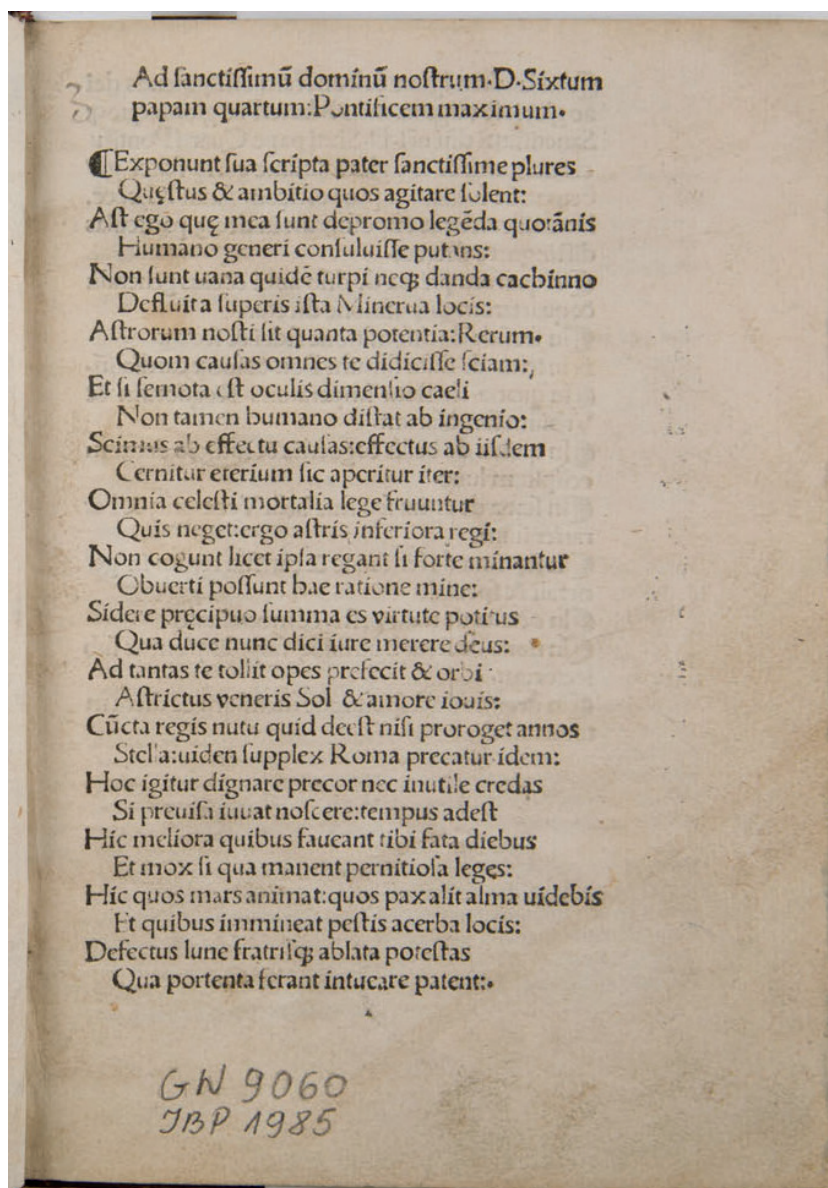 Ad ſanctiſſimū dominū noſtrum·D·Sixtum
papam quartum:Pontificem maximum.
¶Exponunt ſua ſcripta pater ſanctiſſime plures
Quęſtus & ambitio quos agitare ſolent:
Aſt ego quę mea ſunt depromo legēda quotānis
Humano generi conſuluiſſe putans:
Non ſunt uana quidē turpi neqꝫ danda cachinno
Defluita ſuperis iſta Minerua locis:
Aſtrorum noſti ſit quanta potentia:Rerum.
Quom cauſas omnes te didiciſſe ſciam:
Et ſi ſemota eſt oculis dimenſio caeli
Non tamen humano diſtat ab ingenio:
Scimus ab effectu cauſas:effectus ab iiſdem
Cernitur eterium ſic aperitur iter:
Omnia celeſti mortalia lege fruuntur
Quis neget:ergo aſtris inferiora regi:
Non cogunt licet ipſa regant ſi forte minantur
Obuerti poſſunt hae ratione mine:
Sidere pręcipuo ſumma es virtute potitus
Qua duce nunc dici iure merere deus:
Ad tantas te tollit opes prefecit & orbi
Aſtrictus veneris Sol & amore iouis:
Cūcta regis nutu quid deeſt niſi proroget annos
Stella:uiden ſupplex Roma precatur idem:
Hoc igitur dignare precor nec inutile credas
Si preuiſa iuuat noſcere:tempus adeſt
Hic meliora quibus faueant tibi fata diebus
Et mox ſi qua manent pernitioſa leges:
Hic quos mars animat:quos pax alit alma uidebis
Et quibus immineat peſtis acerba locis:
Defectus lune fratriſqꝫ ablata poteſtas
Qua portenta ferant intucare patent:.
GW 9060
IBP 1985